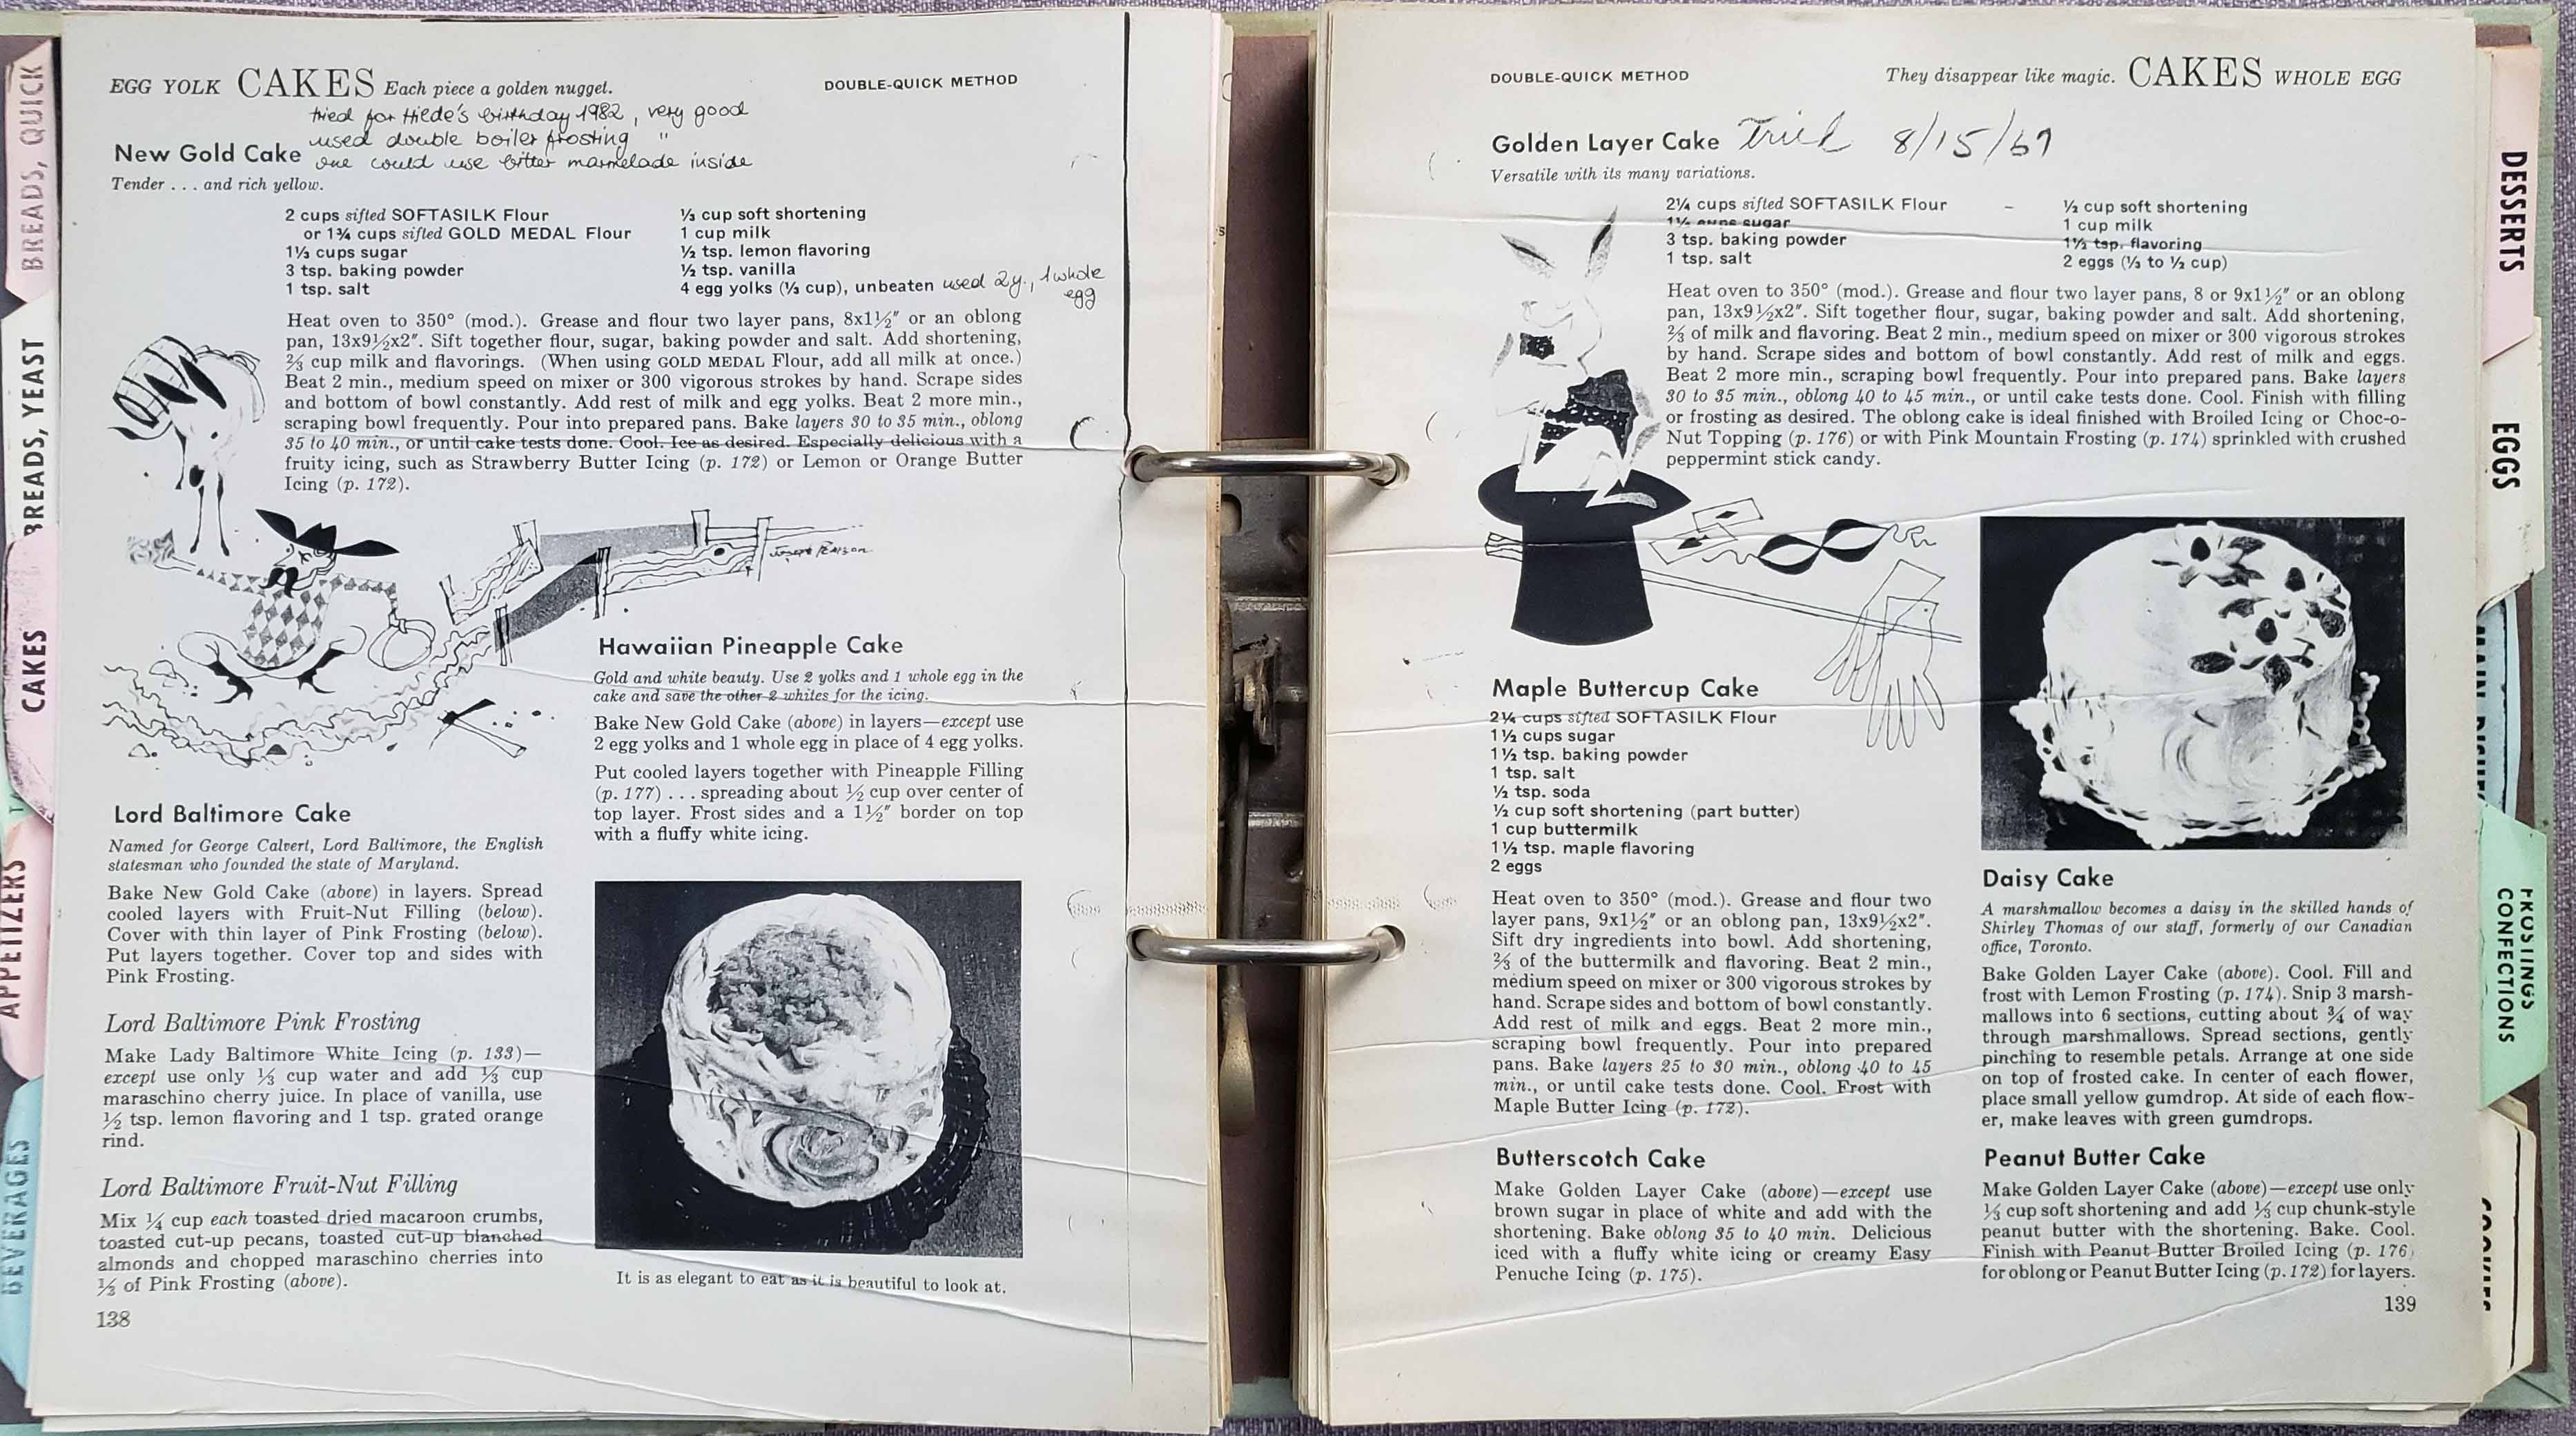 BREADS, QUICK
BREADS, YEAST
CAKES
APPETIZERS
BEVERAGES
EGG YOLK CAKES Each piece a golden nugget.
DOUBLE-QUICK METHOD
tried for Hilde's birthday 1982, very good
used double boiler frosting "
one could use bitter marmelade inside
New Gold Cake
Tender . . . and rich yellow.
2 cups sifted SOFTASILK Flour
or 1¾ cups sifted GOLD MEDAL Flour
1⅓ cups sugar
3 tsp. baking powder
1 tsp. salt
⅓ cup soft shortening
1 cup milk
½ tsp. lemon flavoring
½ tsp. vanilla
4 egg yolks (⅓ cup), unbeaten used 2 y., 1 whole
egg
Heat oven to 350° (mod.). Grease and flour two layer pans, 8x1½″ or an oblong
pan, 13x9½x2″. Sift together flour, sugar, baking powder and salt. Add shortening,
⅔ cup milk and flavorings. (When using GOLD MEDAL Flour, add all milk at once.)
Beat 2 min., medium speed on mixer or 300 vigorous strokes by hand. Scrape sides
and bottom of bowl constantly. Add rest of milk and egg yolks. Beat 2 more min.,
scraping bowl frequently. Pour into prepared pans. Bake layers 30 to 35 min., oblong
35 to 40 min., or until cake tests done. Cool. Ice as desired. Especially delicious with a
fruity icing, such as Strawberry Butter Icing (p. 172) or Lemon or Orange Butter
Icing (p. 172).
Joseph Pearson
Hawaiian Pineapple Cake
Gold and white beauty. Use 2 yolks and 1 whole egg in the
cake and save the other 2 whites for the icing.
Bake New Gold Cake (above) in layers—except use
2 egg yolks and 1 whole egg in place of 4 egg yolks.
Put cooled layers together with Pineapple Filling
(p. 177) . . . spreading about ½ cup over center of
top layer. Frost sides and a 1½″ border on top
with a fluffy white icing.
It is as elegant to eat as it is beautiful to look at.
Lord Baltimore Cake
Named for George Calvert, Lord Baltimore, the English
statesman who founded the state of Maryland.
Bake New Gold Cake (above) in layers. Spread
cooled layers with Fruit-Nut Filling (below).
Cover with thin layer of Pink Frosting (below).
Put layers together. Cover top and sides with
Pink Frosting.
Lord Baltimore Pink Frosting
Make Lady Baltimore White Icing (p. 133)—
except use only ⅓ cup water and add ⅓ cup
maraschino cherry juice. In place of vanilla, use
½ tsp. lemon flavoring and 1 tsp. grated orange
rind.
Lord Baltimore Fruit-Nut Filling
Mix ¼ cup each toasted dried macaroon crumbs,
toasted cut-up pecans, toasted cut-up blanched
almonds and chopped maraschino cherries into
⅓ of Pink Frosting (above).
138
DOUBLE-QUICK METHOD
They disappear like magic. CAKES WHOLE EGG
Golden Layer Cake Tried 8/15/69
Versatile with its many variations.
2¼ cups sifted SOFTASILK Flour
1½ cups sugar
3 tsp. baking powder
1 tsp. salt
½ cup soft shortening
1 cup milk
1½ tsp. flavoring
2 eggs (⅓ to ½ cup)
Heat oven to 350° (mod.). Grease and flour two layer pans, 8 or 9x1½″ or an oblong
pan, 13x9½x2″. Sift together flour, sugar, baking powder and salt. Add shortening,
⅔ of milk and flavoring. Beat 2 min., medium speed on mixer or 300 vigorous strokes
by hand. Scrape sides and bottom of bowl constantly. Add rest of milk and eggs.
Beat 2 more min., scraping bowl frequently. Pour into prepared pans. Bake layers
30 to 35 min., oblong 40 to 45 min., or until cake tests done. Cool. Finish with filling
or frosting as desired. The oblong cake is ideal finished with Broiled Icing or Choc-o-
Nut Topping (p. 176) or with Pink Mountain Frosting (p. 174) sprinkled with crushed
peppermint stick candy.
Maple Buttercup Cake
2¼ cups sifted SOFTASILK Flour
1½ cups sugar
1½ tsp. baking powder
1 tsp. salt
½ tsp. soda
½ cup soft shortening (part butter)
1 cup buttermilk
1½ tsp. maple flavoring
2 eggs
Heat oven to 350° (mod.). Grease and flour two
layer pans, 9x1½″ or an oblong pan, 13x9½x2″.
Sift dry ingredients into bowl. Add shortening,
⅔ of the buttermilk and flavoring. Beat 2 min.,
medium speed on mixer or 300 vigorous strokes by
hand. Scrape sides and bottom of bowl constantly.
Add rest of milk and eggs. Beat 2 more min.,
scraping bowl frequently. Pour into prepared
pans. Bake layers 25 to 30 min., oblong 40 to 45
min., or until cake tests done. Cool. Frost with
Maple Butter Icing (p. 172).
Butterscotch Cake
Make Golden Layer Cake (above)—except use
brown sugar in place of white and add with the
shortening. Bake oblong 35 to 40 min. Delicious
iced with a fluffy white icing or creamy Easy
Penuche Icing (p. 175).
Daisy Cake
A marshmallow becomes a daisy in the skilled hands of
Shirley Thomas of our staff, formerly of our Canadian
office, Toronto.
Bake Golden Layer Cake (above). Cool. Fill and
frost with Lemon Frosting (p. 174). Snip 3 marsh-
mallows into 6 sections, cutting about ¾ of way
through marshmallows. Spread sections, gently
pinching to resemble petals. Arrange at one side
on top of frosted cake. In center of each flower,
place small yellow gumdrop. At side of each flow-
er, make leaves with green gumdrops.
Peanut Butter Cake
Make Golden Layer Cake (above)—except use only
⅓ cup soft shortening and add ⅓ cup chunk-style
peanut butter with the shortening. Bake. Cool.
Finish with Peanut Butter Broiled Icing (p. 176)
for oblong or Peanut Butter Icing (p. 172) for layers.
139
DESSERTS
EGGS
FROSTINGS
CONFECTIONS